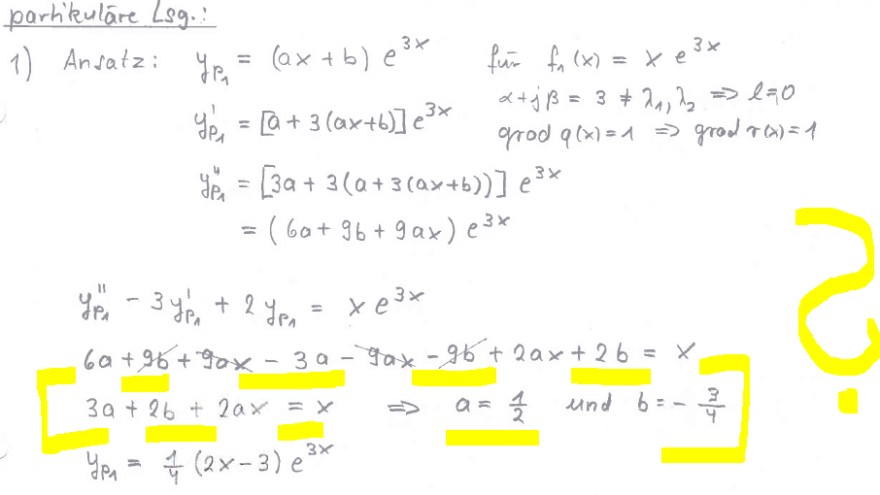 partikuläre Lsg.:
1) Ansatz: y_{p_1} = (ax + b) e^{3x} für f_1(x) = x e^{3x}
α+jβ = 3 ≠ λ_1, λ_2 => l=0
y'_{p_1} = [a + 3(ax+b)] e^{3x} grad q(x) = 1 => grad r(x) = 1
y''_{p_1} = [3a + 3(a + 3(ax+b))] e^{3x}
= (6a + 9b + 9ax) e^{3x}
y''_{p_1} - 3y'_{p_1} + 2y_{p_1} = x e^{3x}
6a + 9b + 9ax - 3a - 9ax - 9b + 2ax + 2b = x
3a + 2b + 2ax = x => a = 1/2 und b = - 3/4
y_{p_1} = 1/4 (2x - 3) e^{3x}
?